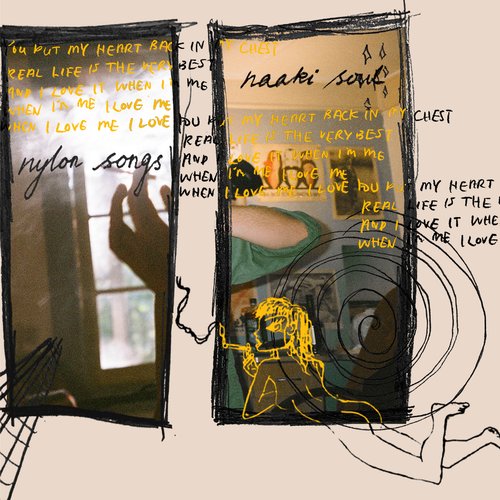 YOU PUT MY HEART BACK IN MY CHEST
REAL LIFE IS THE VERY BEST
AND I LOVE IT WHEN I'M ME
WHEN I'M ME I LOVE ME
WHEN I LOVE ME I LOVE YOU PUT MY HEART BACK IN MY CHEST
REAL LIFE IS THE VERY BEST
AND I LOVE IT WHEN I'M ME
WHEN I'M ME I LOVE ME
WHEN I LOVE ME I LOVE YOU PUT MY HEART
REAL LIFE IS THE
AND I LOVE IT WHE
WHEN I'M ME I LOVE
nylon songs
naaki soul